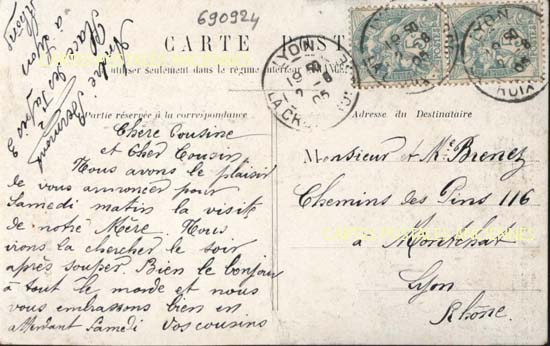 690924
CARTE POSTALE
à utiliser seulement dans le régime intérieur
Partie réservée à la correspondance
Adresse du Destinataire
Chère Cousine
et Cher Cousin
Nous avons le plaisir
de vous annoncer pour
Samedi matin la visite
de notre Mère. Nous
irons la chercher le soir
après souper. Bien le bonjour
à tout le monde et nous
vous embrassons bien en
attendant Samedi Vos cousins
André
Place
à Lyon
Rhône
Monsieur et Me Brenez
Chemins des Pins 116
à Montchat
Lyon
Rhône
LYON
LA CROIX
05
LYON
05
LYON
ROIX
05